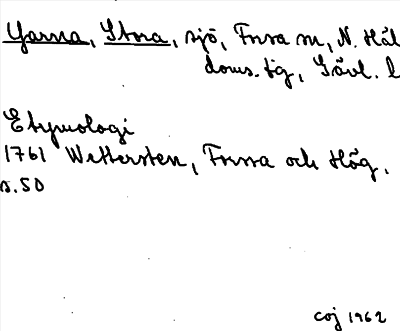 Garna, Stora, sjö, Forsa sn, N. Häl
doms. tjg, Gävl. l
Etymologi
1761 Wettersten, Forssa och Hög,
s. 50
coj 1962